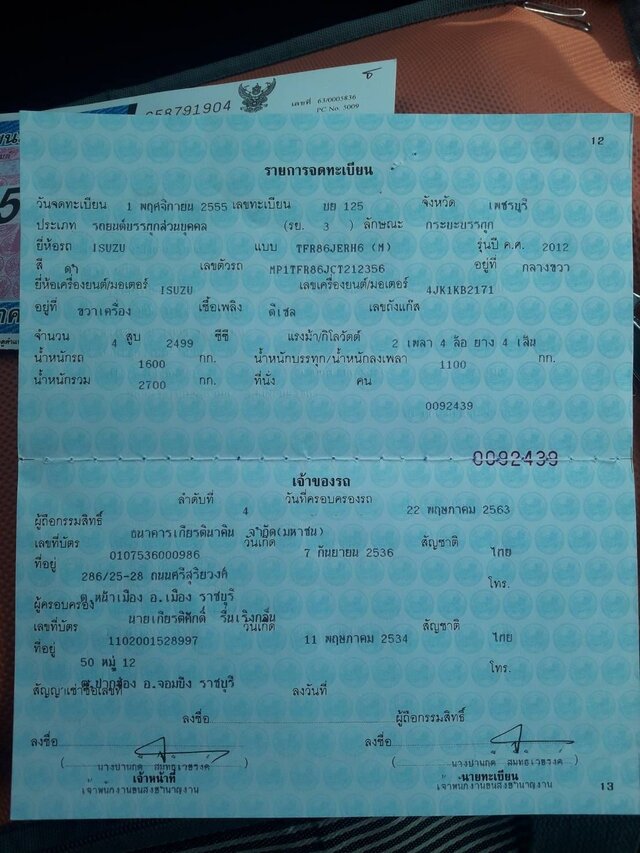 058791904
เลขที่ 63/0005836
PC No. 5009
12
รายการจดทะเบียน
วันจดทะเบียน 1 พฤศจิกายน 2555 เลขทะเบียน บย 125 จังหวัด เพชรบุรี
ประเภท รถยนต์บรรทุกส่วนบุคคล (รย. 3 ) ลักษณะ กระบะบรรทุก
ยี่ห้อรถ ISUZU แบบ TFR86JERH6 (M) รุ่นปี ค.ศ. 2012
สี ดำ เลขตัวรถ MP1TFR86JCT212356 อยู่ที่ กลางขวา
ยี่ห้อเครื่องยนต์/มอเตอร์ ISUZU เลขเครื่องยนต์/มอเตอร์ 4JK1KB2171
อยู่ที่ ขวาเครื่อง เชื้อเพลิง ดีเซล เลขถังแก๊ส
จำนวน 4 สูบ 2499 ซีซี แรงม้า/กิโลวัตต์ 2 เพลา 4 ล้อ ยาง 4 เส้น
น้ำหนักรถ 1600 กก. น้ำหนักบรรทุก/น้ำหนักลงเพลา 1100 กก.
น้ำหนักรวม 2700 กก. ที่นั่ง คน
0092439
0092439
เจ้าของรถ
ลำดับที่ 4 วันที่ครอบครองรถ 22 พฤษภาคม 2563
ผู้ถือกรรมสิทธิ์ ธนาคารเกียรตินาคิน จำกัด(มหาชน)
เลขที่บัตร 0107536000986 วันเกิด 7 กันยายน 2536 สัญชาติ ไทย
ที่อยู่ 286/25-28 ถนนศรีสุริยวงศ์ โทร.
ต.หน้าเมือง อ.เมือง ราชบุรี
ผู้ครอบครอง นายเกียรติศักดิ์ รื่นเริงกลิ่น
เลขที่บัตร 1102001528997 วันเกิด 11 พฤษภาคม 2534 สัญชาติ ไทย
ที่อยู่ 50 หมู่ 12 โทร.
ต.ปากช่อง อ.จอมบึง ราชบุรี
สัญญาเช่าซื้อเลขที่ ลงวันที่
ลงชื่อ ผู้ถือกรรมสิทธิ์
ลงชื่อ ลงชื่อ
เจ้าหน้าที่ นายทะเบียน
เจ้าพนักงานขนส่งชำนาญงาน เจ้าพนักงานขนส่งชำนาญงาน
13